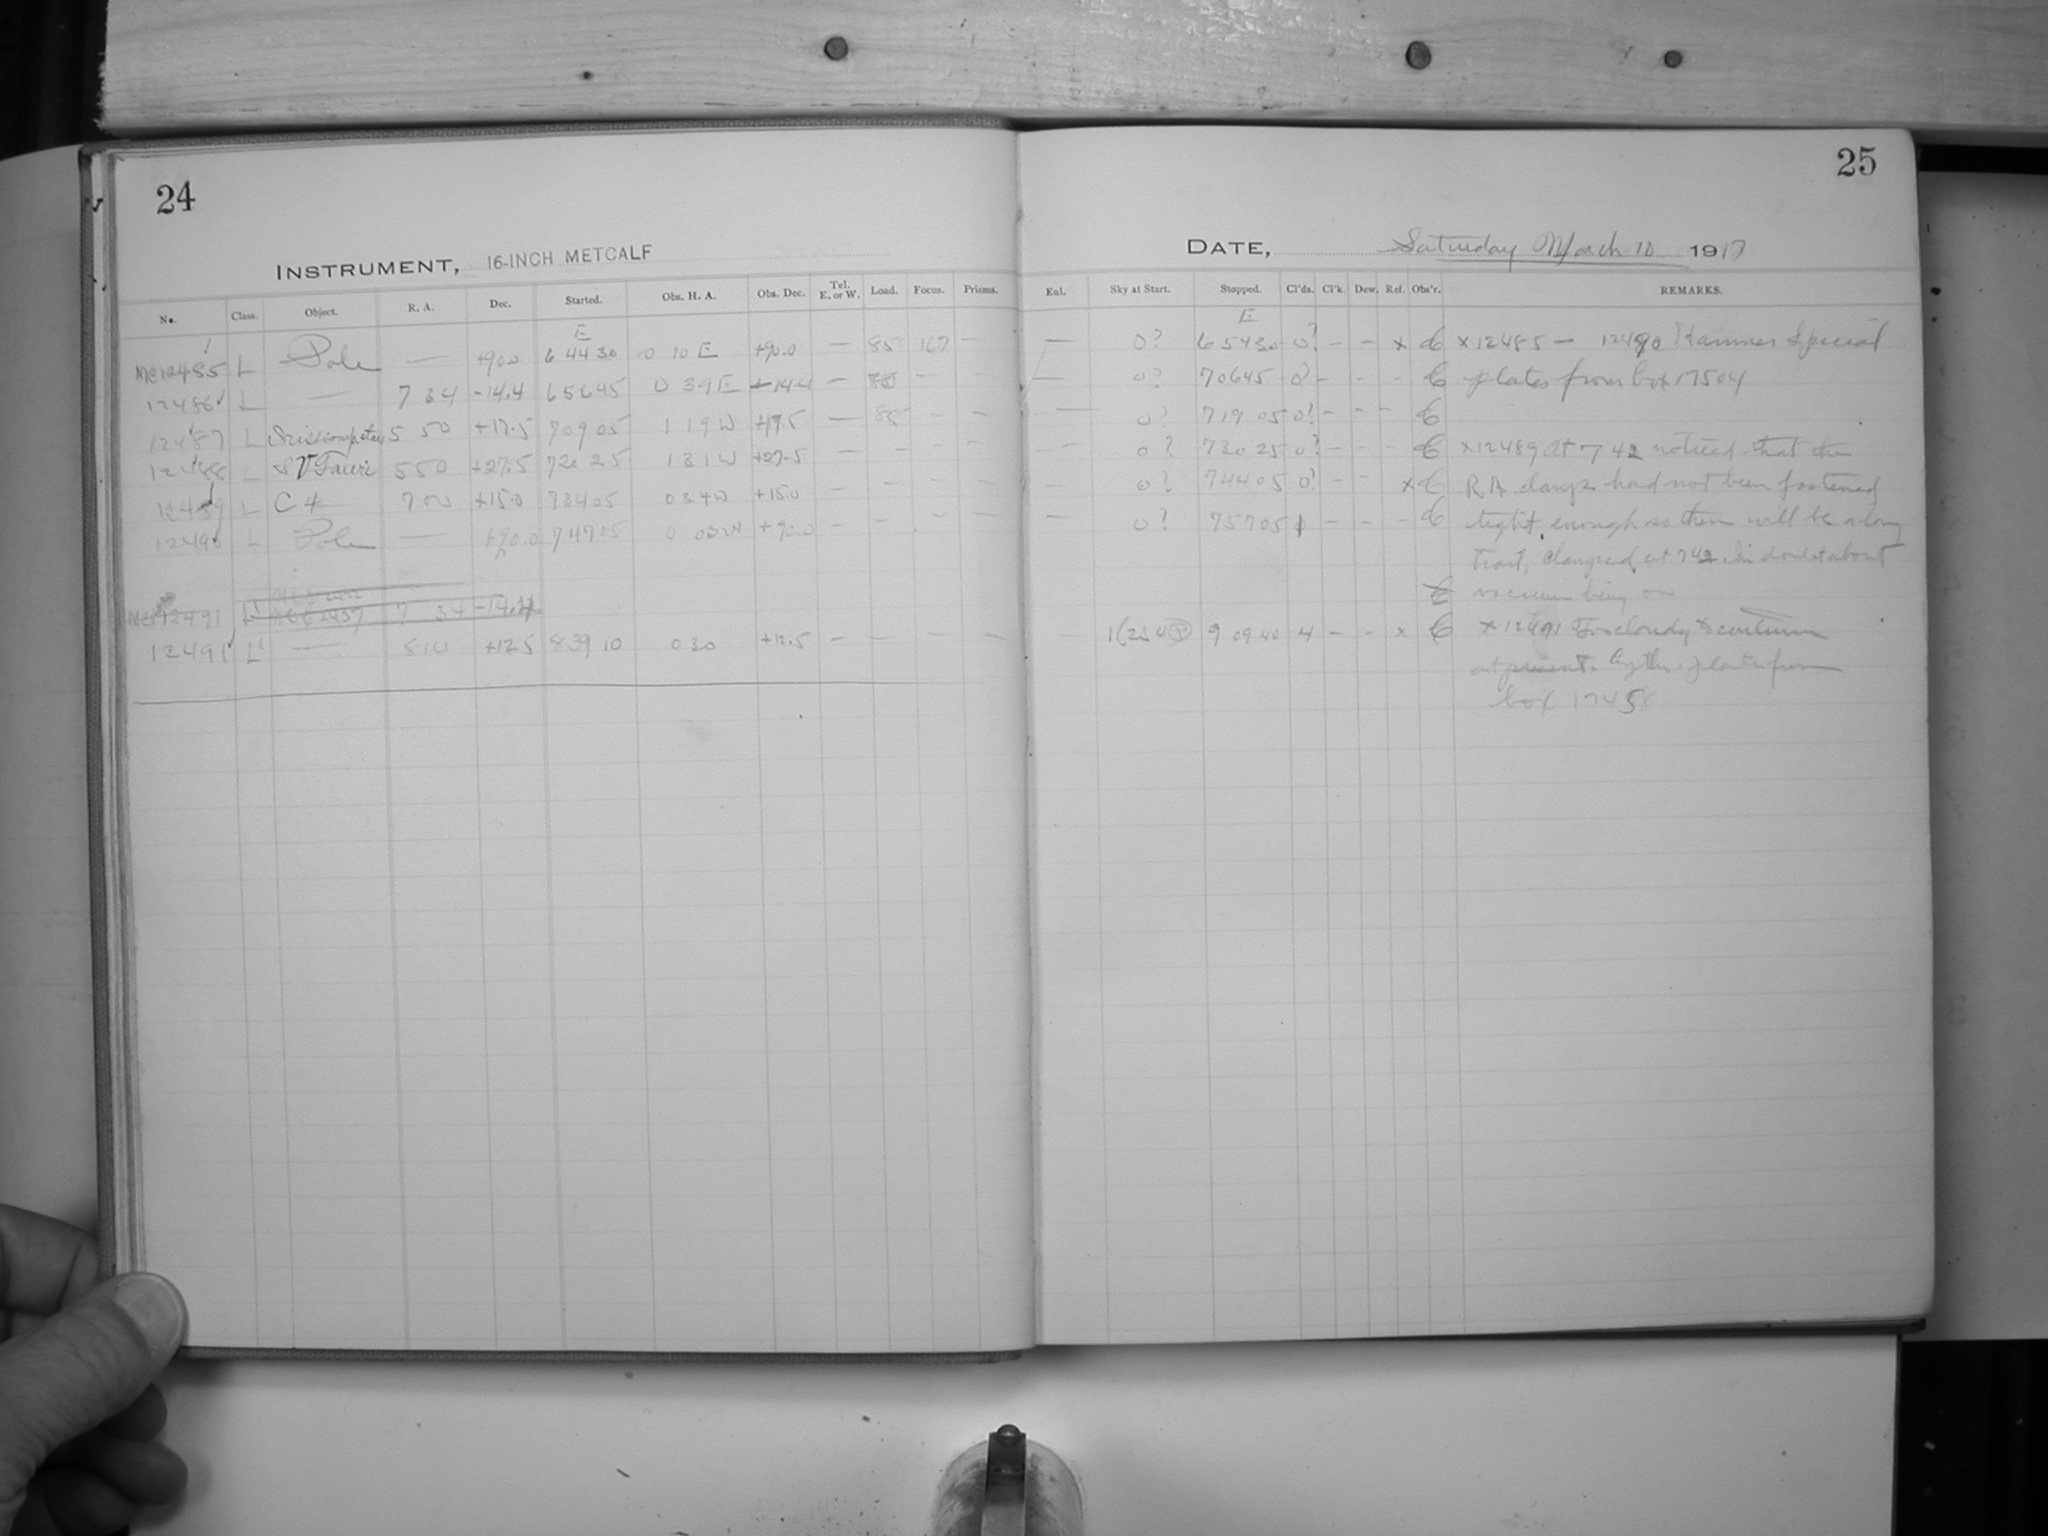 24
25
INSTRUMENT, 16-INCH METCALF
DATE, Saturday March 10 1917
No. Class. Object. R. A. Dec. Started. Obs. H. A. Obs. Dec. Tel. E. or W. Load. Focus. Prisms.
Enl. Sky at Start. Stopped. Cl'ds. Cl'k. Dew. Ref. Obs'r. REMARKS.
E
E
MC12485 L Pole — +90.0 6 44 30 0 10 E +90.0 — 85 167 —
— 0? 6 54 30 0? - - x C x12485 — 12490 Hammer Special
12486 L — 7 34 -14.4 6 56 45 0 39 E -14.4 — — —
— 0? 7 06 45 0? - - - C plates from box 17504
12487 L 5 50 +17.5 7 09 05 1 19 W +17.5 — 85 - -
— 0? 7 19 05 0? - - - C
12488 L SV Tauri 5 50 +27.5 7 20 25 1 31 W +27.5 — — - -
— 0? 7 30 25 0? - - C x12489 At 7 42 noticed that the
12489 L C 4 7 00 +15.0 7 34 05 0 34 W +15.0 — - - -
— 0? 7 44 05 0? - - x C R.A. clamp had not been fastened
12490 L Pole — +90.0 7 47 05 0 00 W +90.0 — - - -
— 0? 7 57 05 1 - - - C tight enough so there will be a long
trail, clamped at 742. In doubt about
C vacuum being on
MC12491 L 7 34 -14.4
12491 L — 8 10 +12.5 8 39 10 0 30 +12.5 — — — —
9 09 40 4 - - x C x 12491 Too cloudy to continue
at present. plate from
box 17458